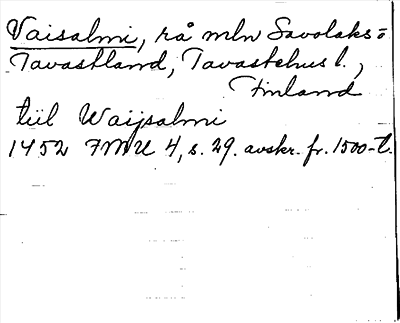 Vaisalmi, rå mln Savolaks o
Tavastland, Tavastehus l.,
Finland
till Waijsalmi
1452 FMU 4, s. 29. avskr. fr. 1500-t.